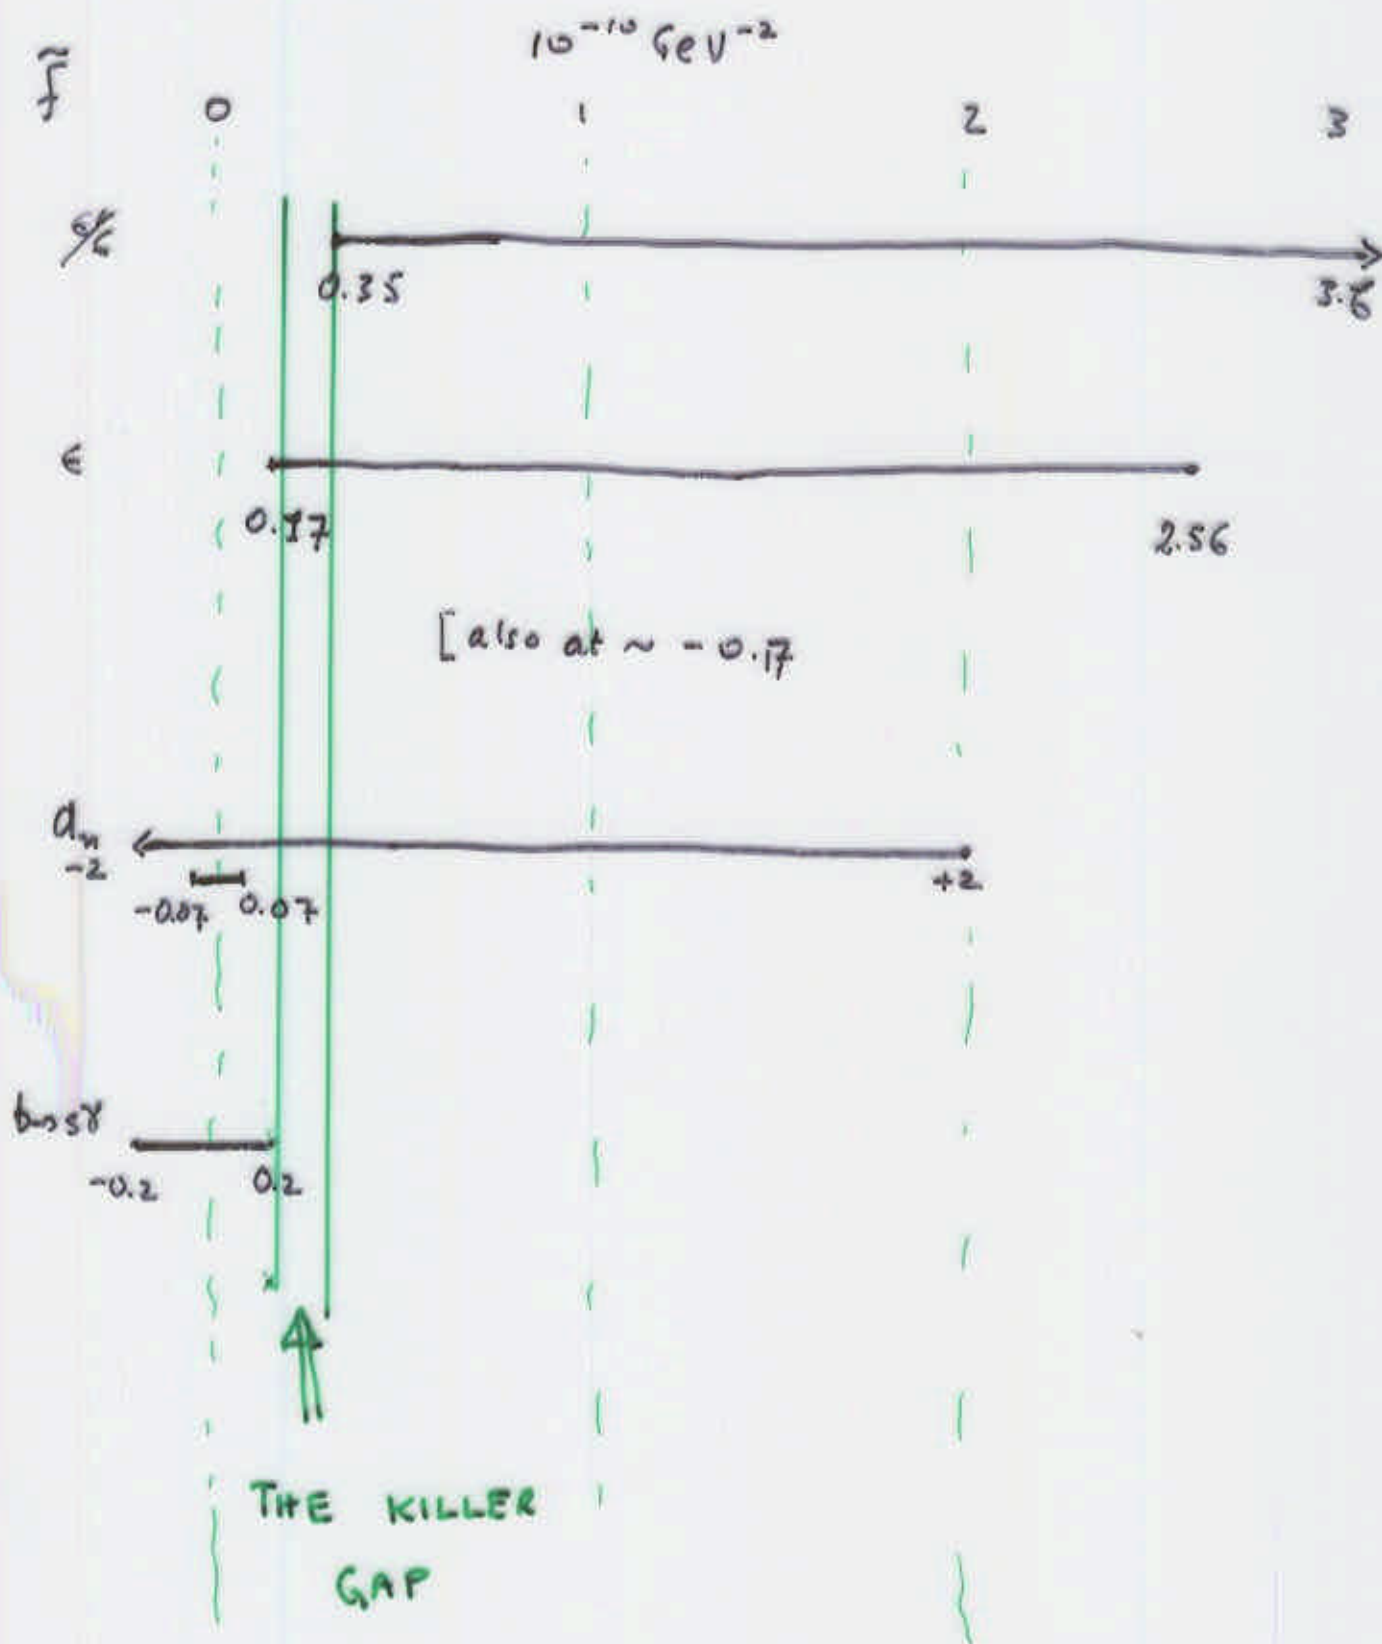 10⁻¹⁰ GeV⁻²
f̃ 0 1 2 3
ε'/ε
0.35
ϵ
0.17 2.56
[also at ~ -0.17
dₙ
-2 +2
-0.07 0.07
b→sγ
-0.2 0.2
THE KILLER
GAP